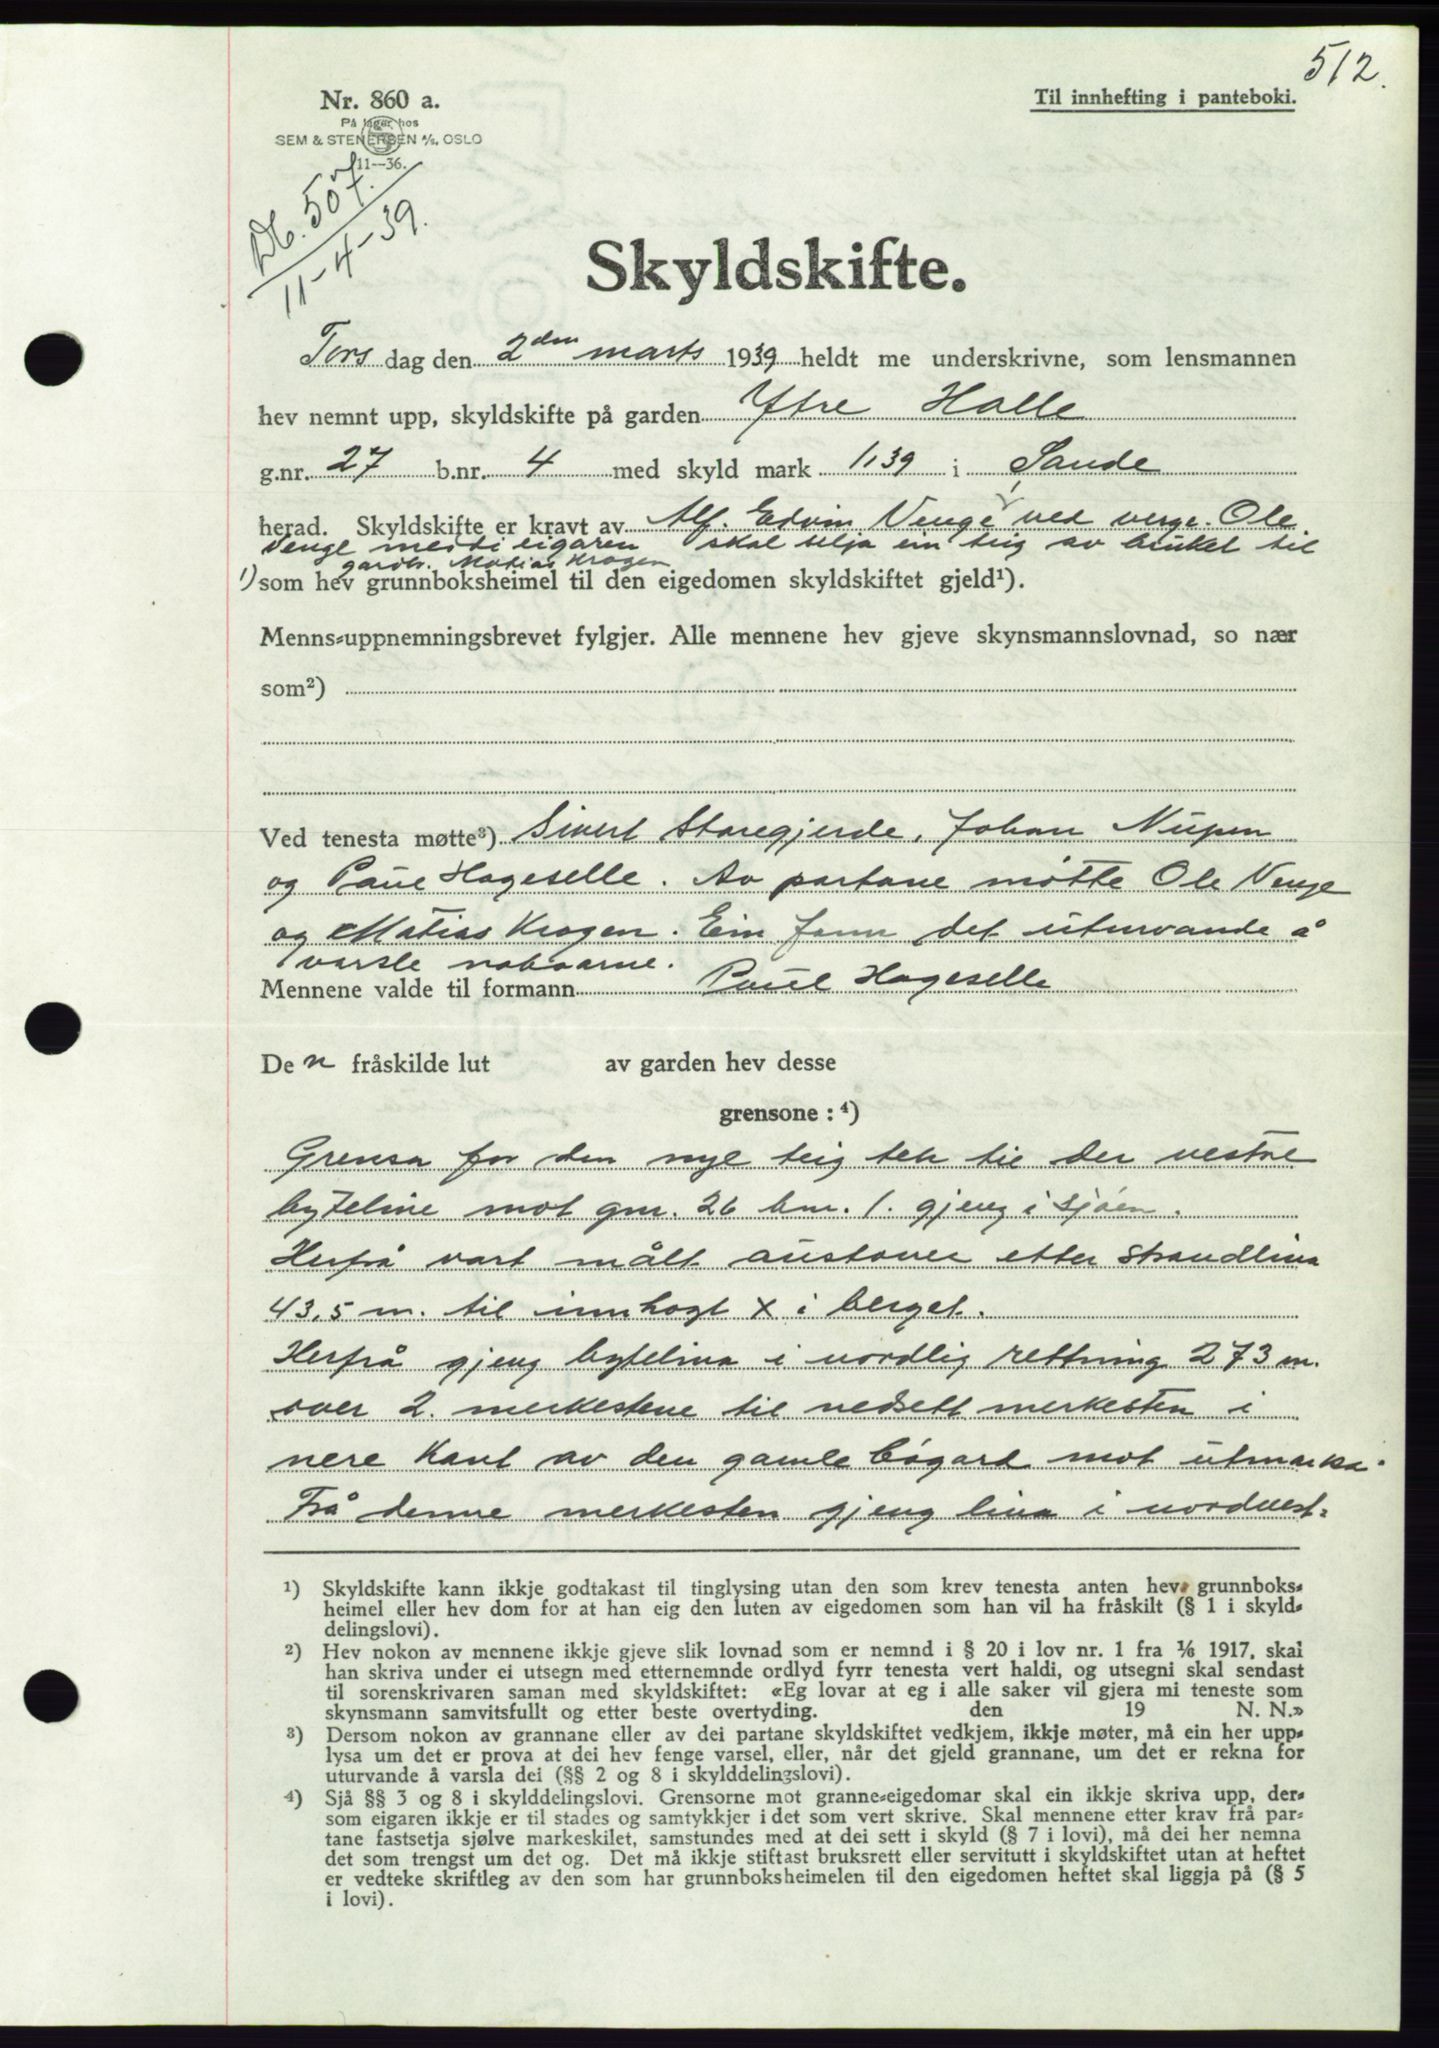 512.
Nr. 860 a.
Til innhefting i panteboki.
På lager hos
SEM & STENERSEN A/S, OSLO
11—36.
Db. 507.
11-4-39.
Skyldskifte.
Tors dag den 2den marts 1939 heldt me underskrivne, som lensmannen
hev nemnt upp, skyldskifte på garden Ytre Halle
g.nr. 27 b.nr. 4 med skyld mark 1,39 i Sande
herad. Skyldskifte er kravt av Alf. Edvin Venge ved verge. Ole
Venge eigaren skal selja ein teig av bruket til
gardb. Matias Krogen
1) som hev grunnboksheimel til den eigedomen skyldskiftet gjeld¹).
Menns=uppnemningsbrevet fylgjer. Alle mennene hev gjeve skynsmannslovnad, so nær
som²)
Ved tenesta møtte³) Sivert Storegjerde, Johan Nupen
og Paul Hageselle. Av partane møtte Ole Venge
og Matias Krogen. Ein fann det uturvande å
varsle naboarne.
Mennene valde til formann Paul Hageselle
De n fråskilde lut av garden hev desse
grensone : ⁴)
Grensa for den nye teig tek til der vestre
byteline mot gnr. 26 bnr. 1. gjeng i sjøen.
Herfrå vart målt austover etter strandlina
43,5 m. til innhogt x i berget.
Herfrå gjeng bytelina i nordlig rettning 273 m.
over 2. merkestene til nedsett merkesten i
nere kant av den gamle bøgard mot utmarka.
Frå denne merkesten gjeng lina i nordvest=
1) Skyldskifte kann ikkje godtakast til tinglysing utan den som krev tenesta anten hev grunnboks=
heimel eller hev dom for at han eig den luten av eigedomen som han vil ha fråskilt (§ 1 i skyld=
delingslovi).
2) Hev nokon av mennene ikkje gjeve slik lovnad som er nemnd i § 20 i lov nr. 1 fra 1/6 1917, skal
han skriva under ei utsegn med etternemnde ordlyd fyrr tenesta vert haldi, og utsegni skal sendast
til sorenskrivaren saman med skyldskiftet: «Eg lovar at eg i alle saker vil gjera mi teneste som
skynsmann samvitsfullt og etter beste overtyding. den 19 N. N.»
3) Dersom nokon av grannane eller av dei partane skyldskiftet vedkjem, ikkje møter, må ein her upp=
lysa um det er prova at dei hev fenge varsel, eller, når det gjeld grannane, um det er rekna for
uturvande å varsla dei (§§ 2 og 8 i skylddelingslovi).
4) Sjå §§ 3 og 8 i skylddelingslovi. Grensorne mot granne=eigedomar skal ein ikkje skriva upp, der=
som eigaren ikkje er til stades og samtykkjer i det som vert skrive. Skal mennene etter krav frå par=
tane fastsetja sjølve markeskilet, samstundes med at dei sett i skyld (§ 7 i lovi), må dei her nemna
det som trengst um det og. Det må ikkje stiftast bruksrett eller servitutt i skyldskiftet utan at heftet
er vedteke skriftleg av den som har grunnboksheimelen til den eigedomen heftet skal liggja på (§ 5
i lovi).